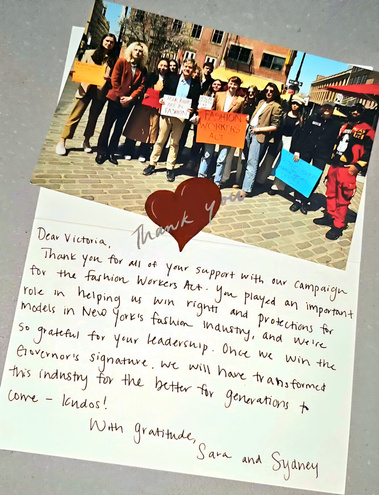 FASHION
WORKERS
ACT
Thank you
Dear Victoria,
Thank you for all of your support with our campaign
for the Fashion Workers Act. You played an important
role in helping us win rights and protections for
models in New York's fashion industry, and we're
so grateful for your leadership. Once we win the
Governor's signature, we will have transformed
this industry for the better for generations to
come - kudos!
With gratitude,
Sara and Sydney